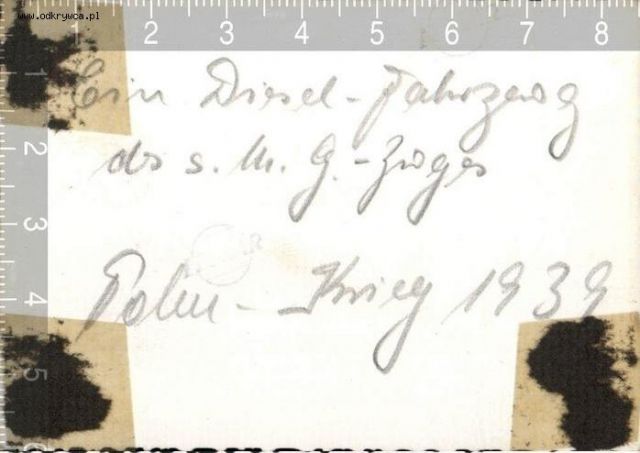 www.odkrywca.pl
2 3 4 5 6 7 8
1
2
3
4
5
6
Ein Diesel-Fahrzeug
des s. M. G.-Zuges
Polen-Krieg 1939